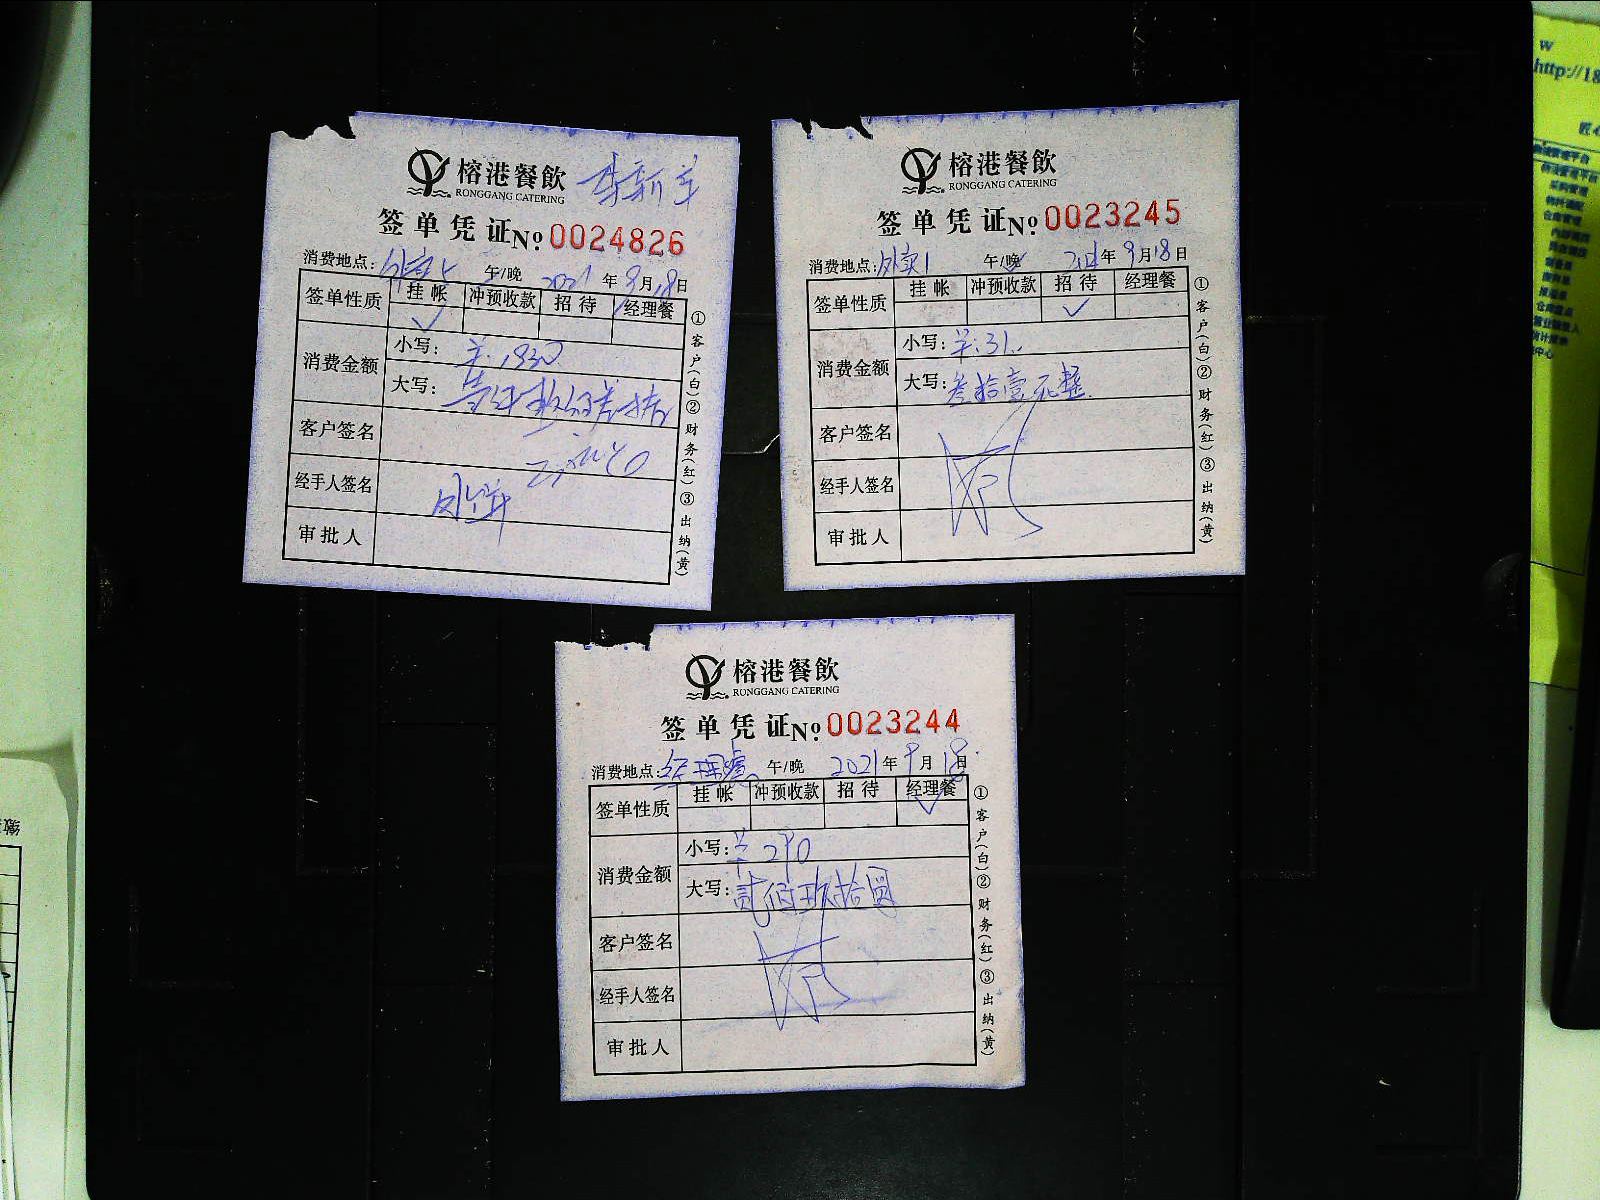 榕港餐飲
RONGGANG CATERING
签单凭证 № 0024826
消费地点: 午/晚 2021年9月18日
签单性质 挂帐 冲预收款 招待 经理餐
✓
消费金额 小写: ¥:1930
大写:
客户签名
经手人签名
审批人
①客户(白)②财务(红)③出纳(黄)
榕港餐飲
RONGGANG CATERING
签单凭证 № 0023245
消费地点: 外卖1 午/晚 2021年9月18日
签单性质 挂帐 冲预收款 招待 经理餐
✓
消费金额 小写: ¥:31.
大写: 叁拾壹元整
客户签名
经手人签名
审批人
①客户(白)②财务(红)③出纳(黄)
榕港餐飲
RONGGANG CATERING
签单凭证 № 0023244
消费地点: 经理餐 午/晚 2021年9月18日
签单性质 挂帐 冲预收款 招待 经理餐
✓
消费金额 小写: ¥290
大写: 贰佰玖拾圆
客户签名
经手人签名
审批人
①客户(白)②财务(红)③出纳(黄)
w
http://18